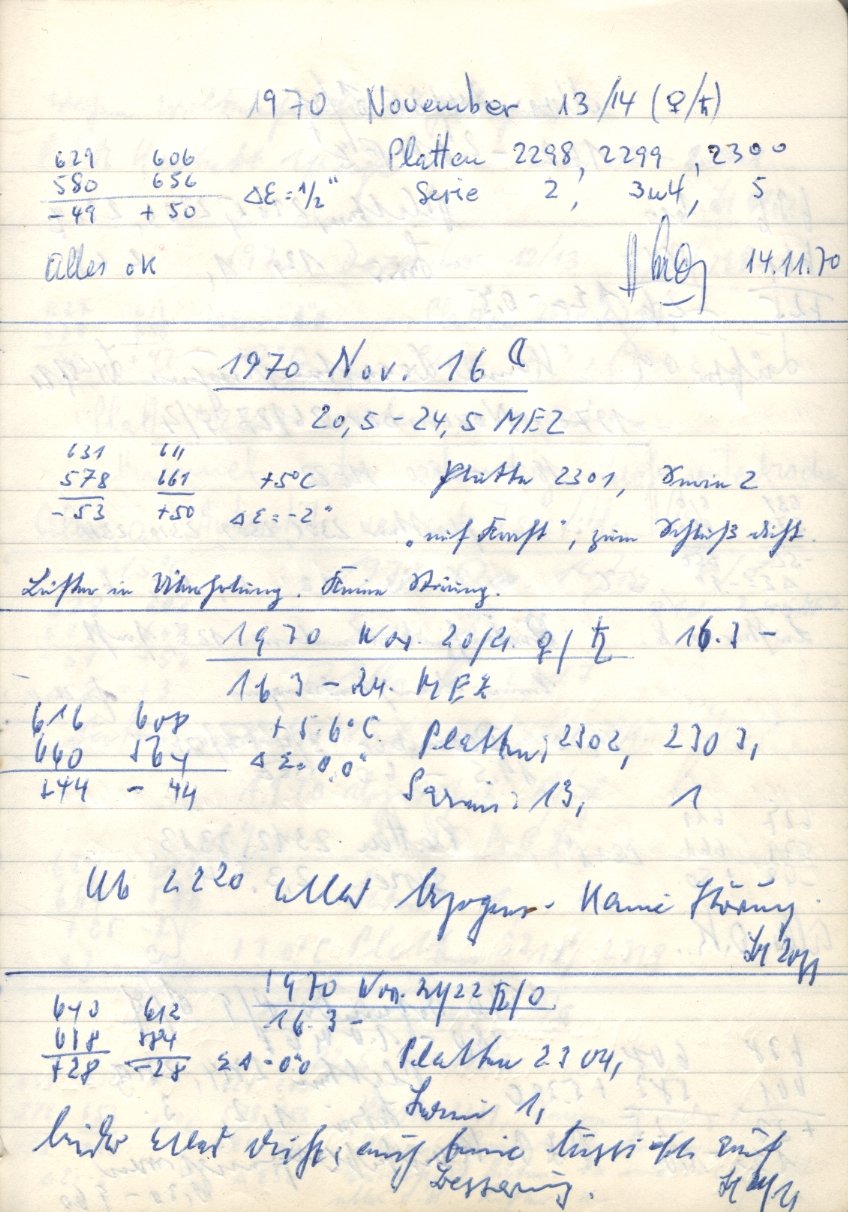 1970 November 13/14 (♀/♄)
629 606 Platten 2298, 2299, 2300
580 656 ΔE = 1/2" Serie 2, 3u4, 5
-49 +50
Alles ok 14.11.70
1970 Nov. 16 ☾
20,5-24,5 MEZ
631 611
578 661 +5°C Platte 2301, Serie 2
-53 +50 ΔE = -2"
"auf Kraft", zum Schluß dicht.
Lüfter in Überholung. Keine Störung.
1970 Nov. 20/21. ♀/♄ 16.3 -
16 3 - 24. MEZ
616 608 +5.6°C. Platten: 2302, 2303,
660 564 ΔE = 0,0"
+44 - 44 Serie: 13, 1
Ab 2220 alles bezogen. Keine Störung.
1970 Nov. 21/22 ♄/☉
16. 3 -
640 612
Platten 2304,
+28 -28
Serie 1,
leider alles dicht, auch keine Aussicht auf
Besserung.